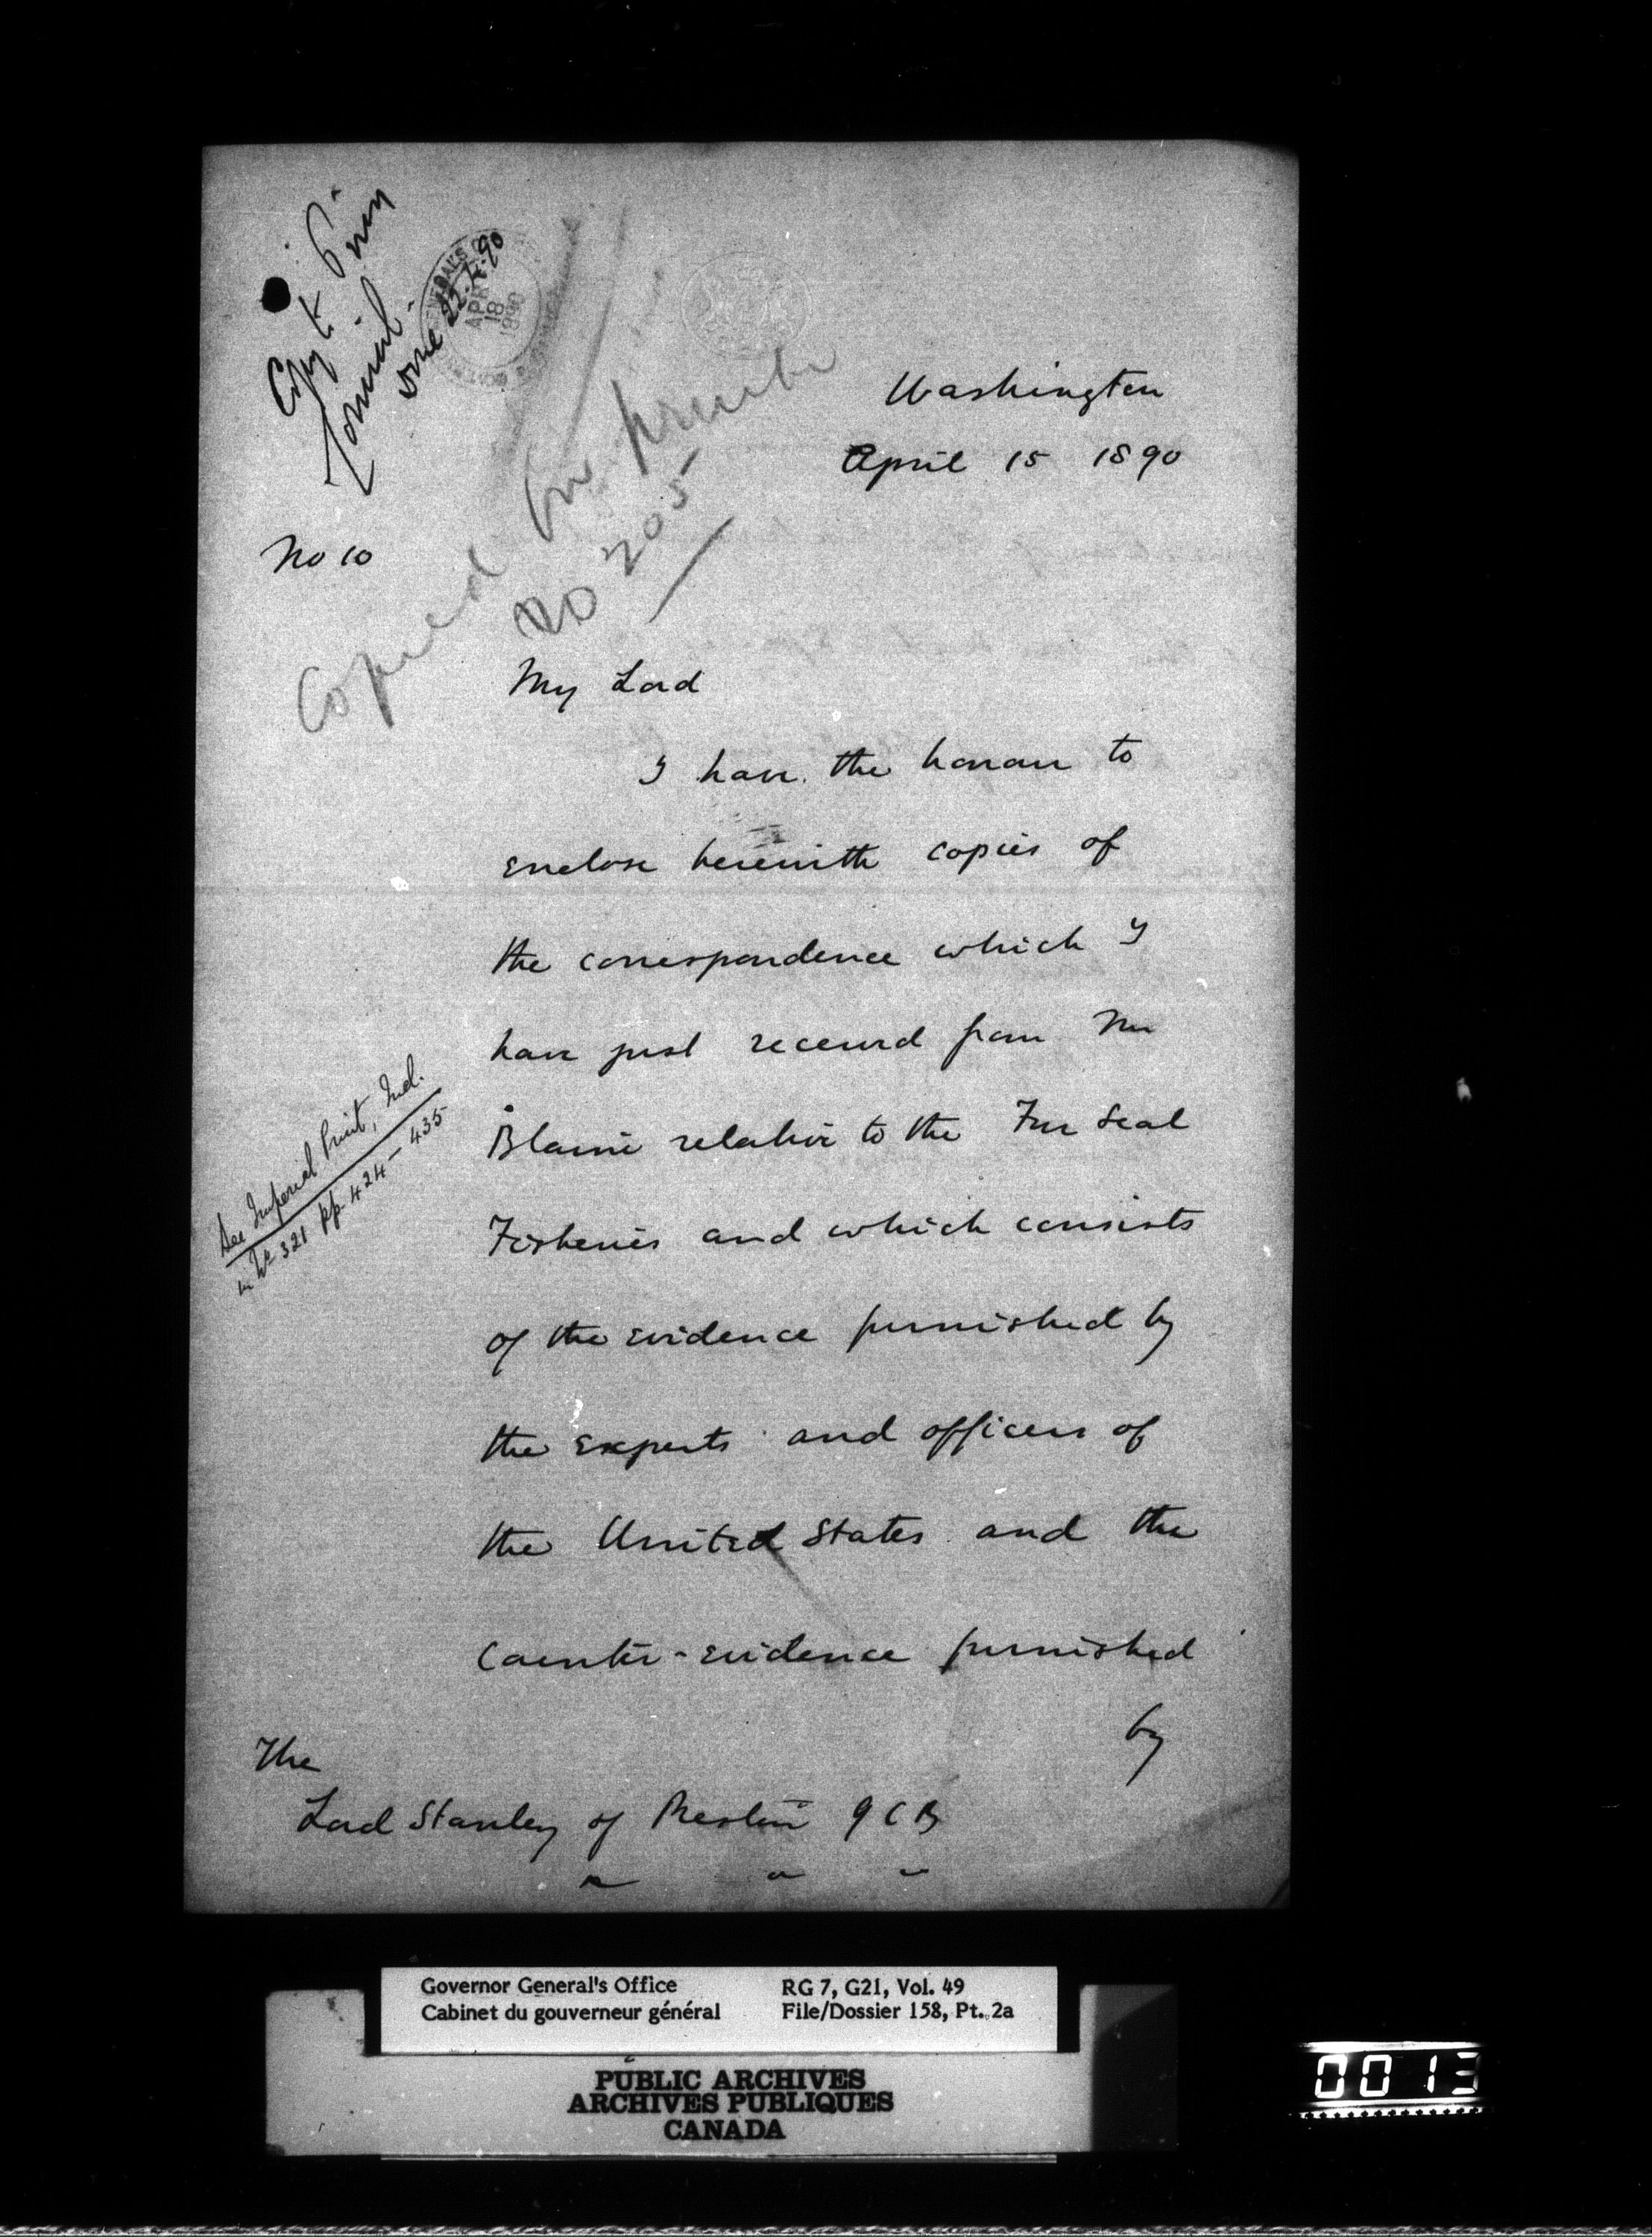 Copy to Privy
Council.
done 22.4.90
GOVERNOR GENERAL'S
APR
18
1890
Washington
April 15 1890
No 10
Copied for printer
No 205
My Lord
I have the honour to
enclose herewith copies of
the correspondence which I
have just received from Mr
Blaine relative to the Fur Seal
Fisheries and which consists
of the evidence furnished by
the experts and officers of
the United States and the
counter-evidence furnished
by
See Imperial Print, Incl.
in No 321 pp. 424-435
The
Lord Stanley of Preston GCB
Governor General's Office
Cabinet du gouverneur général
RG 7, G21, Vol. 49
File/Dossier 158, Pt. 2a
PUBLIC ARCHIVES
ARCHIVES PUBLIQUES
CANADA
0013